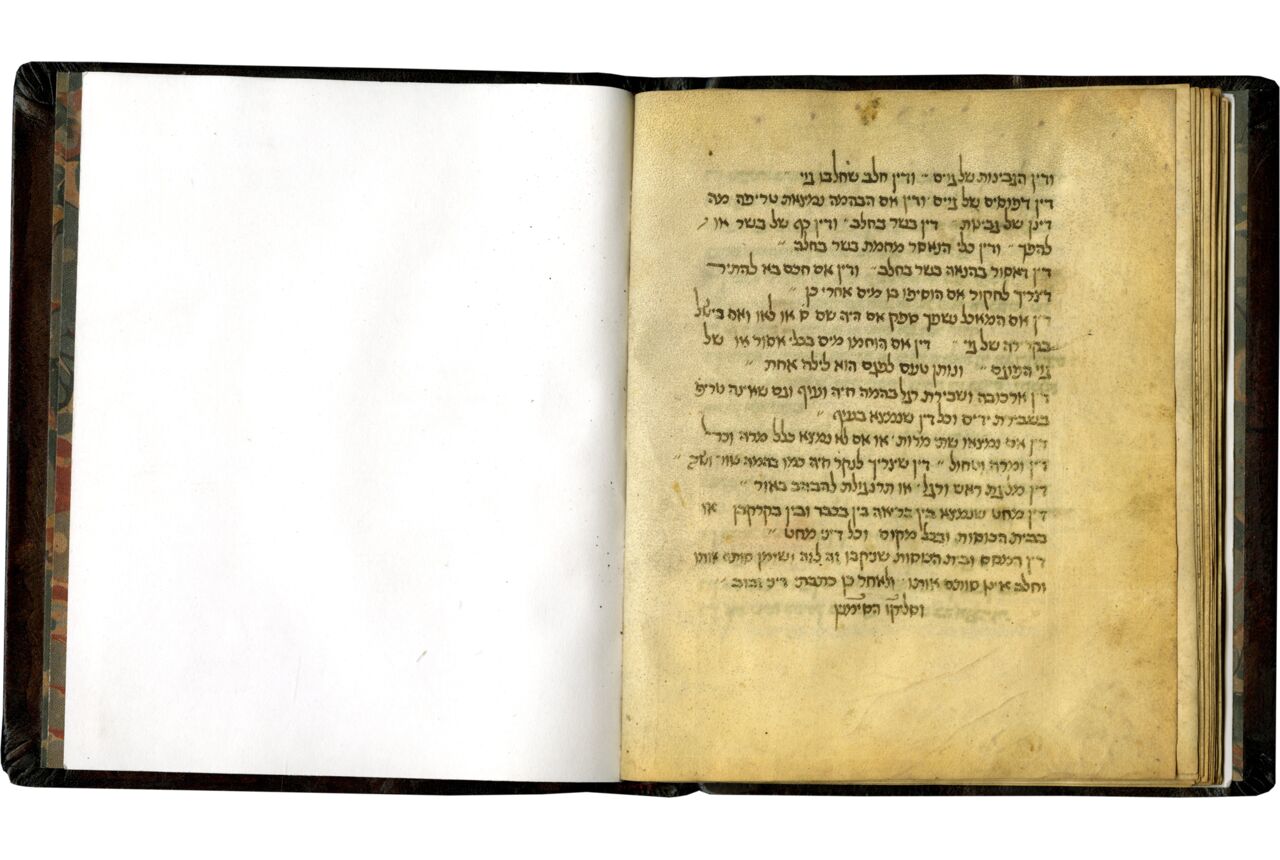 ודין הגבינות של גוים ודין חלב שחלבו גוי
דין דפוסים של גוים ודין אם הבהמה נמצאת טריפה מה
דינן של גבינות דין בשר בחלב ודין כף של בשר או
להפך ודין כלי הנאסר מחמת בשר בחלב
דין דאסור בהנאה בשר בחלב ודין אם חכם בא להתיר
דצריך לחקור אם הוסיפו בו מים אחרי כן
דין אם המאכל נשפך ספק אם היה שם ס או לאו ואם בישל
בקדירה של גוי דין אם הוחמו מים בכלי אסור או של
גוי ונותן טעם לפגם הוא לילה אחת
דין ארכובה ושבירת רגל בהמה חיה ועוף וגם שאינה טריפ
בשבירת ידים וכל דין שנמצא בעוף
דין אם נמצאו שתי מרות או אם לא נמצא כלל מרה וכל
דין ומרה וטחול דין שצריך לנקר חיה כמו בהמה
דין מליגת ראש ורגל או תרנגולת להבהב באור
דין מחט שנמצא בין בריאה בין בכבד ובין בקרקבן או
בבית הכוסות ובכל מקום וכל דיני מחט
דין המסס ובית הכוסות שניקבו זה לזה ושומן סותם אותו
וחלב אינו סותם אותו ולאחר כן כתבתי דיני
וסליקו הסימנין